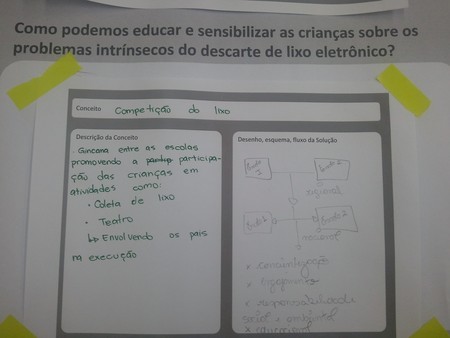 Como podemos educar e sensibilizar as crianças sobre os
problemas intrínsecos do descarte de lixo eletrônico?
Conceito Competição do lixo
Descrição da Conceito
. Gincana entre as escolas
promovendo a participa-
ção das crianças em
atividades como:
• Coleta de lixo
• Teatro
↳ Envolvendo os pais
na execução
Desenho, esquema, fluxo da Solução
regional
nacional
x conscientização
x engajamento
x responsabilidade
social e ambiental